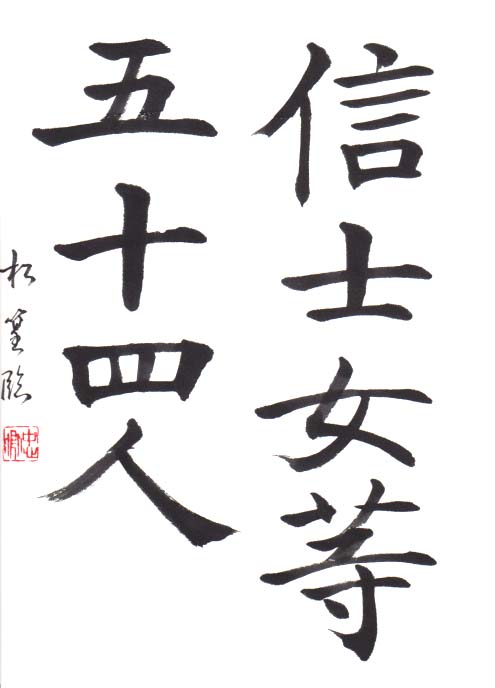 信士女等
五十四人
松篁臨